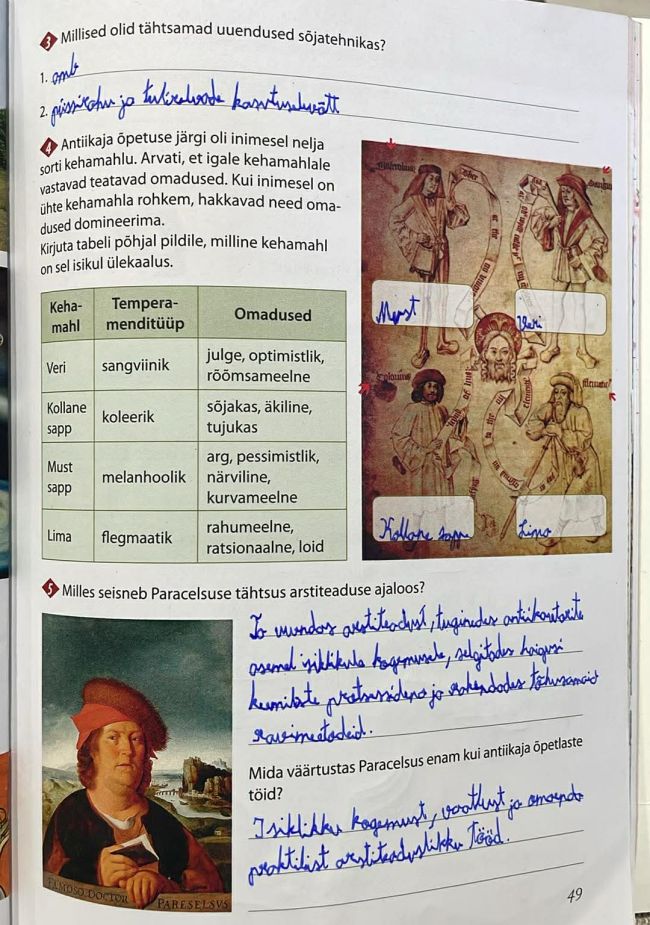 3 Millised olid tähtsamad uuendused sõjatehnikas?
1. amb
2. püssirohu ja tulirelvade kasutuselevõtt
4 Antiikaja õpetuse järgi oli inimesel nelja
sorti kehamahlu. Arvati, et igale kehamahlale
vastavad teatavad omadused. Kui inimesel on
ühte kehamahla rohkem, hakkavad need oma-
dused domineerima.
Kirjuta tabeli põhjal pildile, milline kehamahl
on sel isikul ülekaalus.
Keha-
mahl
Tempera-
menditüüp
Omadused
Veri
sangviinik
julge, optimistlik,
rõõmsameelne
Kollane
sapp
koleerik
sõjakas, äkiline,
tujukas
Must
sapp
melanhoolik
arg, pessimistlik,
närviline,
kurvameelne
Lima
flegmaatik
rahumeelne,
ratsionaalne, loid
Must
Veri
Kollane sapp
Lima
5 Milles seisneb Paracelsuse tähtsus arstiteaduse ajaloos?
Ta uuendas arstiteadust, tuginedes antiikautorite
asemel isiklikule kogemusele, selgitades haigusi
keemiliste protsessidena ja rakendades tõhusamaid
ravimeetodeid.
Mida väärtustas Paracelsus enam kui antiikaja õpetlaste
töid?
Isiklikku kogemust, vaatlust ja omaenda
praktilist arstiteaduslikku tööd.
FAMOSO DOCTOR PARESELSVS
49